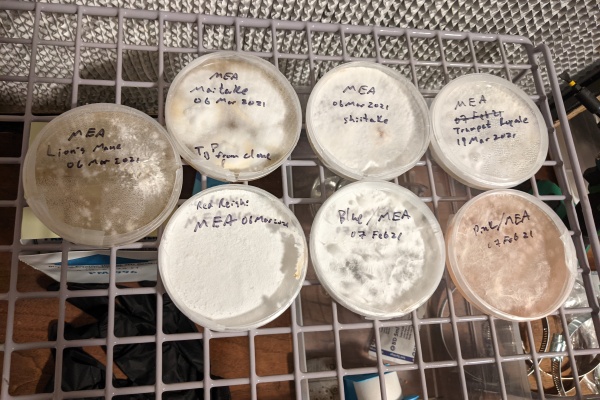 MEA
Lion's Mane
06 Mar 2021
MEA
Maitake
06 Mar 2021
TgP from clone
MEA
06 Mar 2021
shiitake
MEA
07 Feb 21
Trumpet Royale
19 Mar 2021
Red Reishi
MEA 06 Mar 2021
Blue/MEA
07 Feb 21
Pink/MEA
07 Feb 21